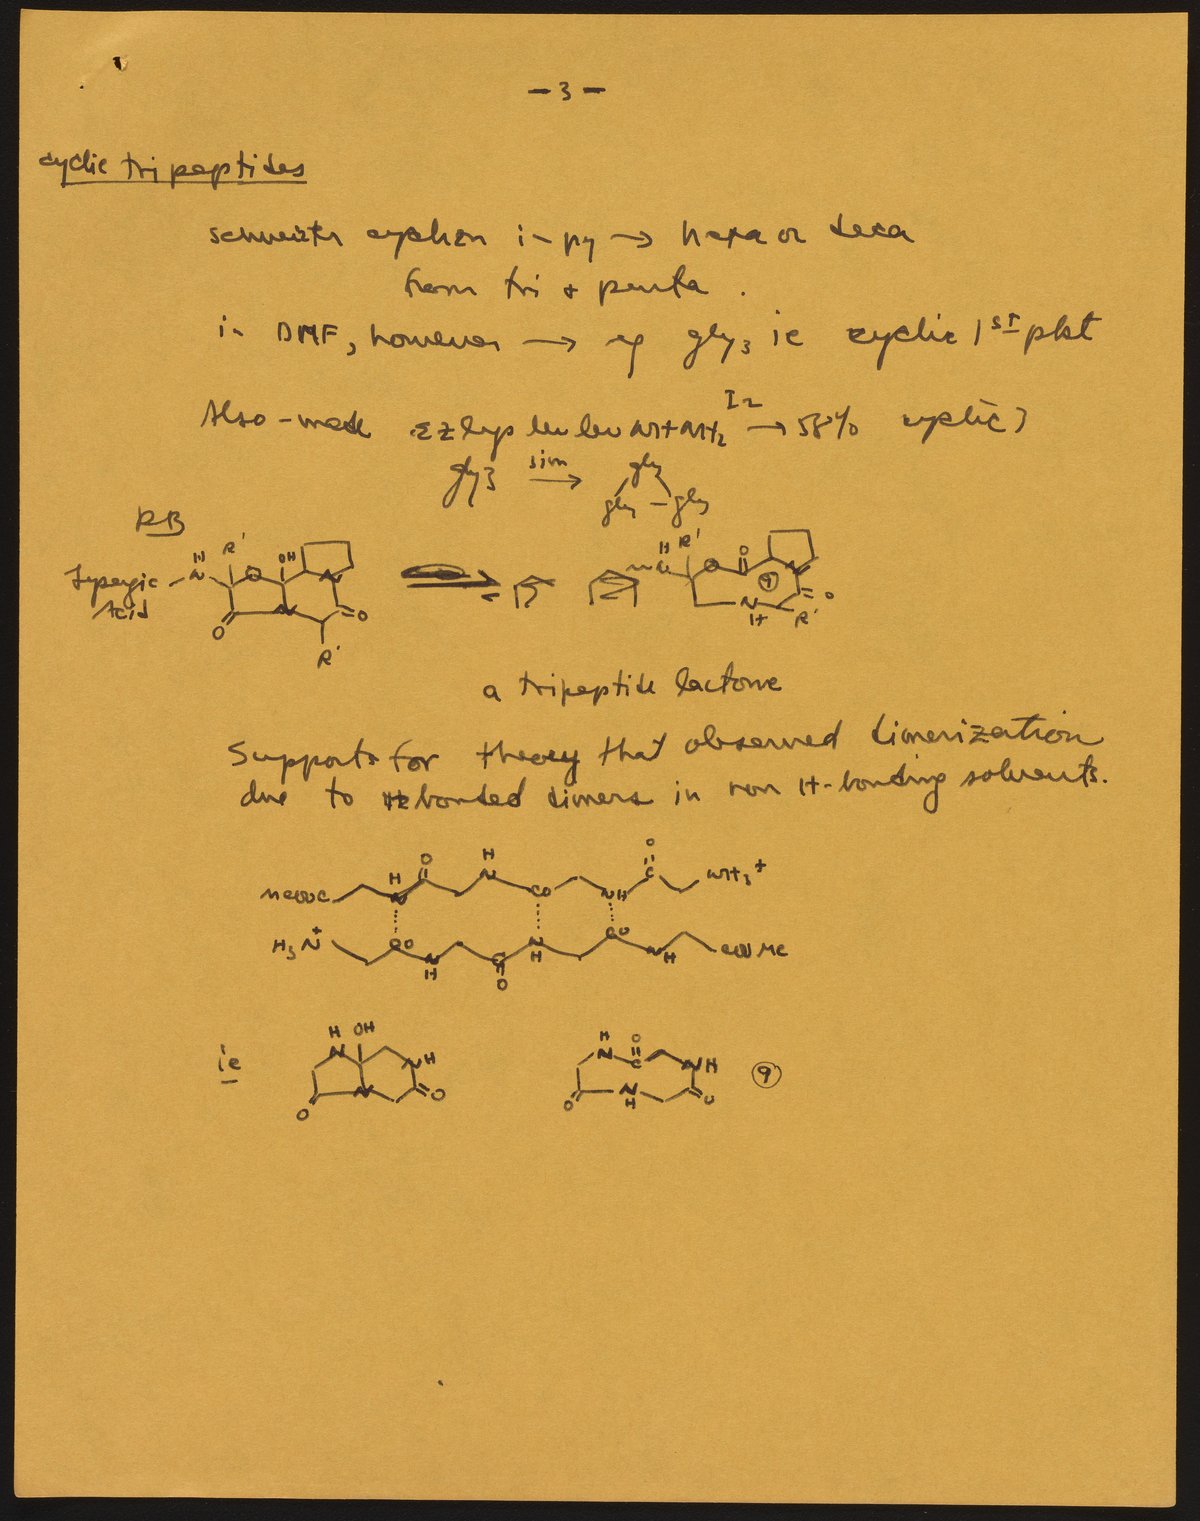 - 3 -
cyclic tripeptides
in py → hexa or deca
from tri + penta .
in DMF, however → eg gly3 ie cyclic 1st pkt
Also - made lys leu leu NHNH2 I2 → 58% cyclic 3
gly3 → gly gly - gly
RB
Lysergic Acid - N H R' O OH N N O O R'
N H R' O O N 9 O N H R'
a tripeptide lactone
Supports for theory that observed dimerization
due to H bonded dimers in non H-bonding solvents.
MeOOC N H O N H CO NH C O NH3+
H3N+ CO N H C O N H CO N H COOMe
ie H N OH NH N O O
H N O C NH O N H O 9